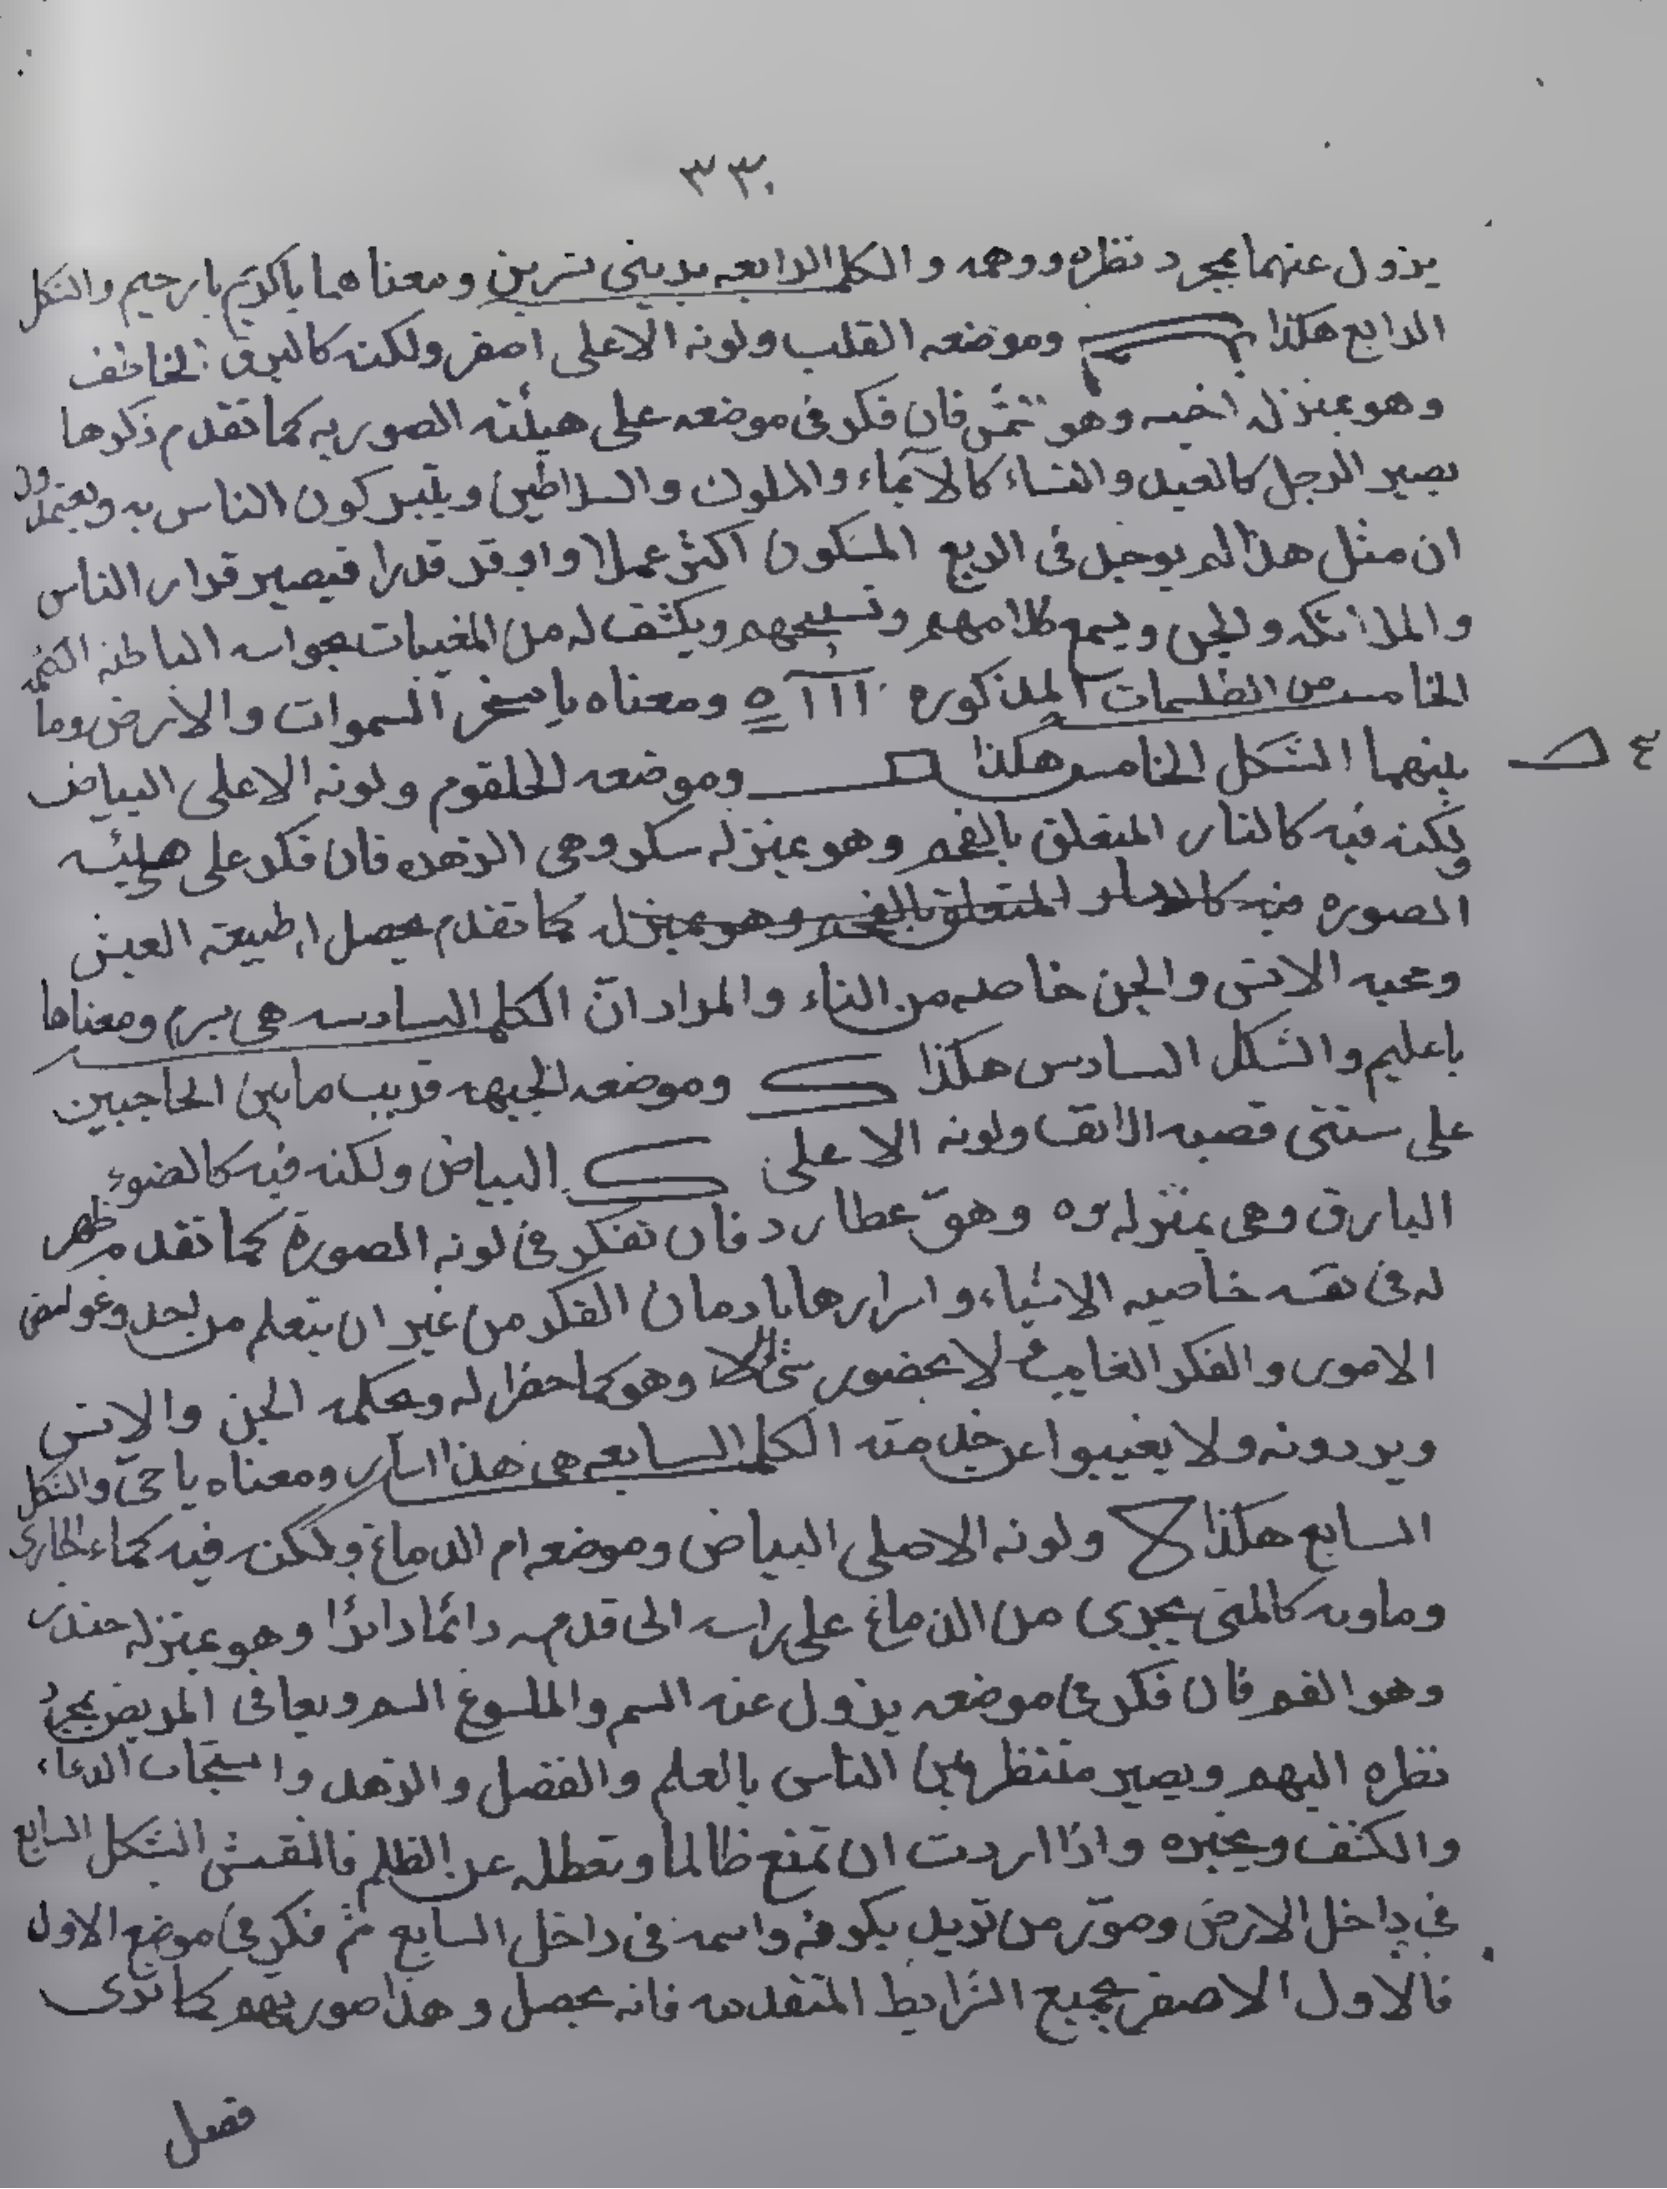 ٣٣
يزول عنهما بمجرد نظره ووهمه والكلمه الرابعه بدينى سرين ومعناهما ياكريم يارحيم والشكل
الرابع هكذا وموضعه القلب ولونه الاعلى اصفر ولكنه كالبرق الخاطف
وهو بمنزله وهو شمس فان فكر فى موضعه على هيئته الصوريه كما تقدم ذكرها
يصير الرجل كالعبد والنساء كالآماء والملوك والسلاطين ويتبركون الناس به ويعتمدون
ان مثل هذا لم يوجد فى الربع المسكون اكثر عملا واوقر قدرا فيصير قرار الناس
والملائكه والجن ويسمع كلامهم وتسبيحهم ويكشف له من المغيبات بحواسه الباطنه الكلمه
الخامسه من الطلسمات المذكوره ااا ه ومعناه يا مسخر السموات والارض وما
بينهما الشكل الخامس هكذا وموضعه الحلقوم ولونه الاعلى البياض
٤
ولكنه فيه كالنار المتعلق بالفحم وهو بمنزله سكر وهى الزهره فان فكر على هيئته
الصوره فيه المتعلق بالفحم وهو بمنزله كما تقدم يحصل له طيبة العيش
ومحبه الانس والجن خاصه من النساء والمراد ان الكلمه السادسه هى برم ومعناها
ياعليم والشكل السادس هكذا وموضعه الجبهه قريب مابين الحاجبين
على قصبه الانف ولونه الاعلى البياض ولكنه فيه كالضوء
البارق وهى بمنزله وهو عطارد فان تفكر فى لونه الصورة كما تقدم ظهر
له فى نفسه خاصيه الاشياء واسرارها بادمان الفكر من غير ان يتعلم من احد وغوامض
الامور والفكر الغايب لا بحضور شئ الا وهو كما حضر له ويحكمه الجن والانس
ويردونه ولا يغيبوا عن خدمته الكلمه السابعه هى هذا اسار ومعناه ياحى والشكل
السابع هكذا ولونه الاصلى البياض وموضعه ام الدماغ ولكنه فيه كماء الجارى
وماوه كالمنى يجرى من الدماغ على راسه الى قدمه دائما دائرا وهو بمنزله
وهو القمر فان فكر فى موضعه يزول عنه السم والملسوع السم ويعافى المريض بمجرد
نظره اليهم ويصير منتظر بين الناس بالعلم والفضل والزهد واستجاب الدعاء
والكشف وغيره واذا اردت ان تمنع ظالما وتعطله عن الظلم فانقش الشكل السابع
فى داخل الارض وصور من تريد واسمه فى داخل السابع ثم فكر فى موضع الاول
فالاول الاصفر بجميع الشرايط المتقدمه فانه يحصل وهذا صوريهم كما ترى
فصل